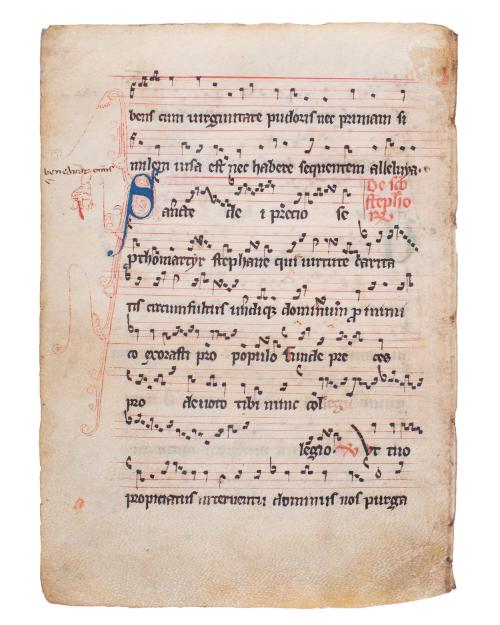 bens cum uirginitate pudoris nec primam si
milem uisa est nec habere sequentem alleluya.
De sco
stepho
Sancte de i precio se
prothomartyr stephane qui uirtute carita
tis circumfultus undiqz dominum pro inimi
co exorasti pro populo funde pre ces
pro deuoto tibi nunc col
legio. Ut tuo
propiciatus interuentu dominus nos purga